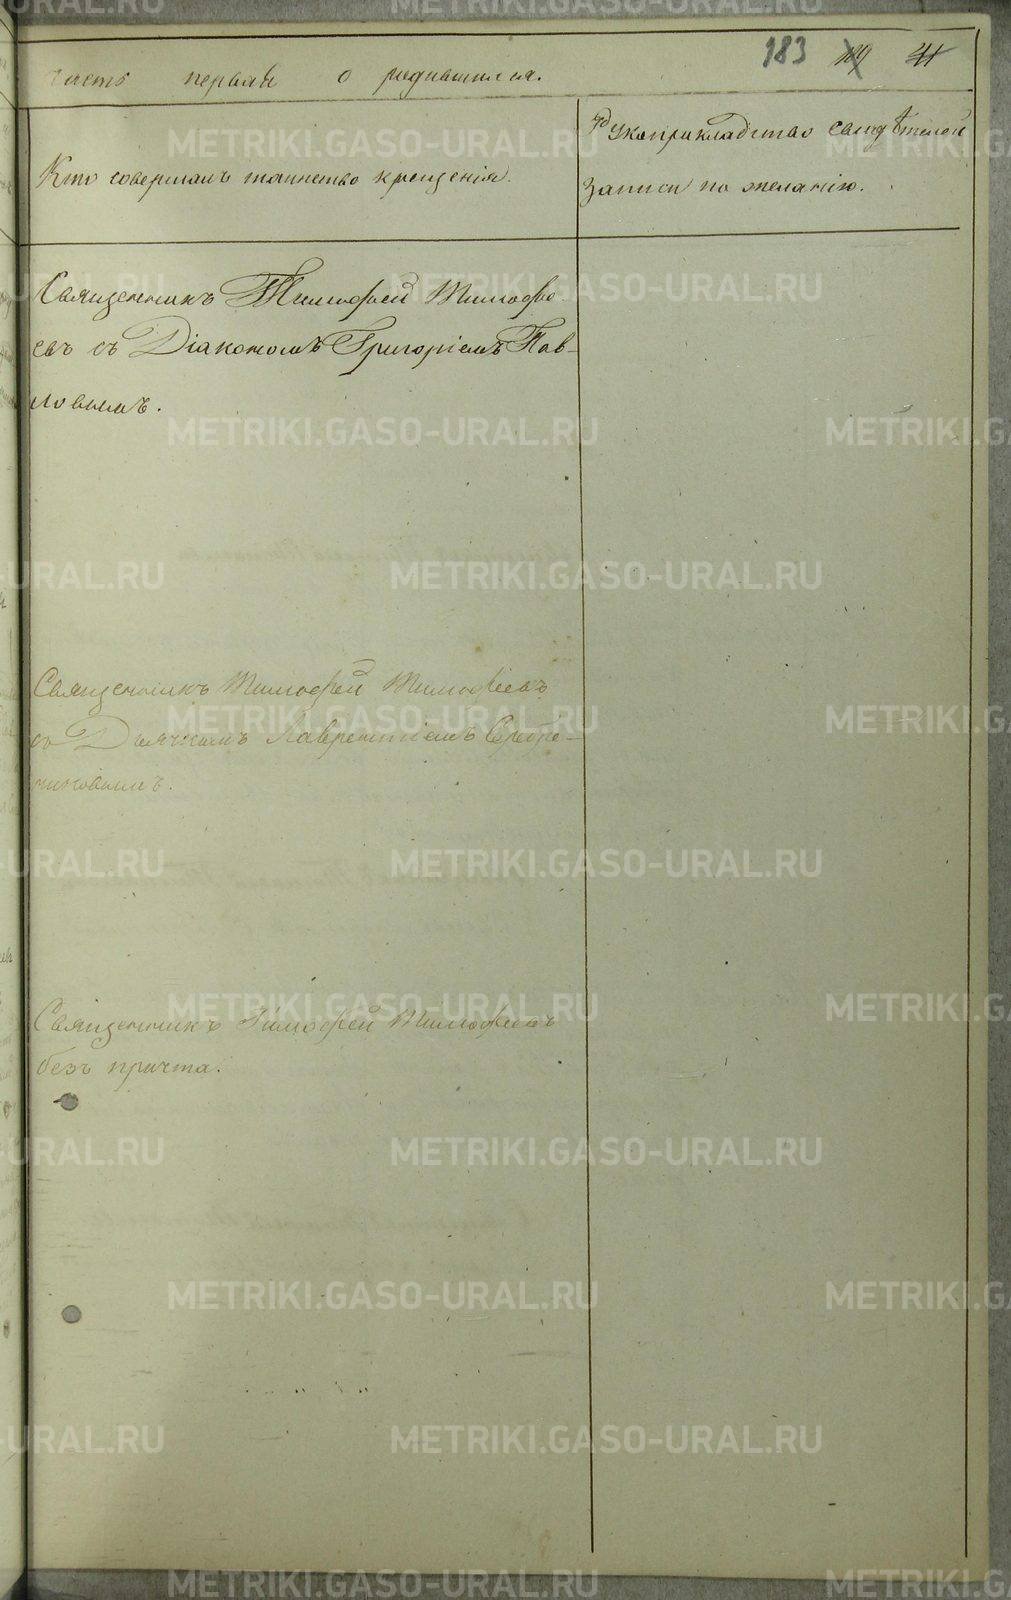 183 189 41
Часть первая о родившихся.
Кто совершалъ таинство крещенія.
Рукоприкладство свидѣтелей
записи по желанію.
Священникъ Тимофей Тимофѣ-
евъ съ Діакономъ Григоріемъ Пав-
ловымъ.
Священникъ Тимофей Тимофѣевъ
съ Дьячкомъ Лаврентіемъ Серебре-
никовымъ.
Священникъ Тимофей Тимофѣевъ
безъ причта.
METRIKI.GASO-URAL.RU